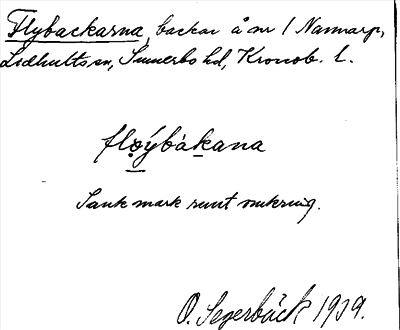 Flybackarna, backar å nr 1 Nannarp,
Lidhults sn, Sunnerbo hd, Kronob. l.
flo̤ýbàkana
Sank mark runt omkring.
O. Segerbäck 1939.